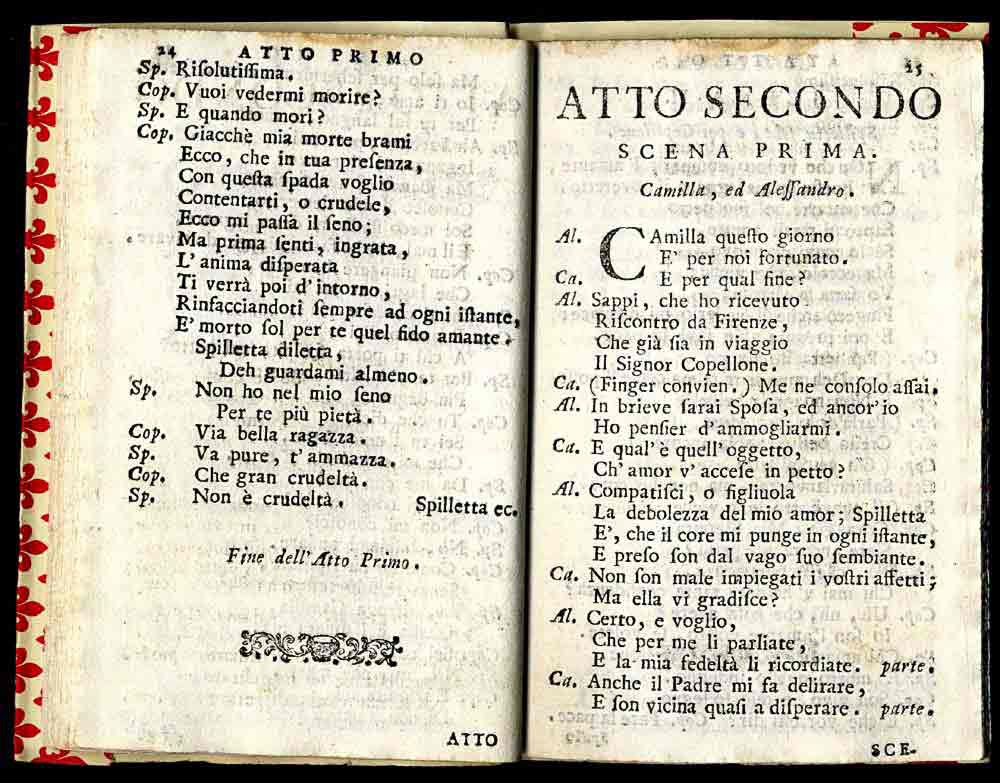 24 ATTO PRIMO
Sp. Riſolutiſſima.
Cop. Vuoi vedermi morire?
Sp. E quando mori?
Cop. Giacchè mia morte brami
Ecco, che in tua preſenza,
Con queſta ſpada voglio
Contentarti, o crudele,
Ecco mi paſſa il ſeno;
Ma prima ſenti, ingrata,
L'anima diſperata
Ti verrà poi d'intorno,
Rinfacciandoti ſempre ad ogni iſtante,
E' morto ſol per te quel fido amante.
Spilletta diletta,
Deh guardami almeno.
Sp. Non ho nel mio ſeno
Per te più pietà.
Cop. Via bella ragazza.
Sp. Va pure, t'ammazza.
Cop. Che gran crudeltà.
Sp. Non è crudeltà. Spilletta ec.
Fine dell'Atto Primo.
ATTO
25
ATTO SECONDO
SCENA PRIMA.
Camilla, ed Aleſſandro.
Al. CAmilla queſto giorno
E' per noi fortunato.
Ca. E per qual fine?
Al. Sappi, che ho ricevuto
Riſcontro da Firenze,
Che già ſia in viaggio
Il Signor Copellone.
Ca. (Finger convien.) Me ne conſolo aſſai.
Al. In brieve ſarai Spoſa, ed ancor'io
Ho penſier d'ammogliarmi.
Ca. E qual'è quell'oggetto,
Ch'amor v'acceſe in petto?
Al. Compatiſci, o figliuola
La debolezza del mio amor; Spilletta
E', che il core mi punge in ogni iſtante,
E preſo ſon dal vago ſuo ſembiante.
Ca. Non ſon male impiegati i voſtri affetti;
Ma ella vi gradiſce?
Al. Certo, e voglio,
Che per me li parliate,
E la mia fedeltà li ricordiate. parte.
Ca. Anche il Padre mi fa delirare,
E ſon vicina quaſi a diſperare. parte.
SCE-